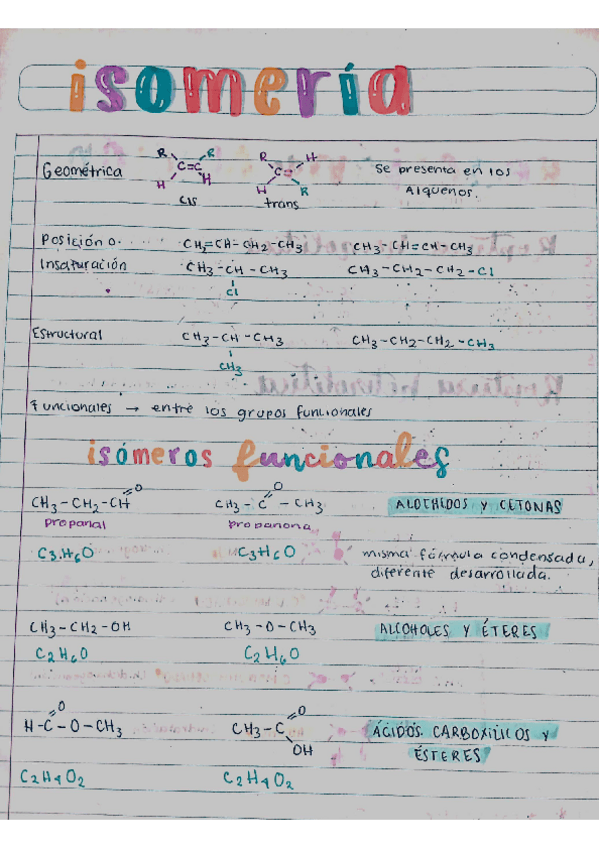 isomería
Geométrica
R R C=C H H
cis
R H C= H R
trans
se presenta en los
Alquenos.
Posición o
Insaturación
CH2=CH-CH2-CH3 CH3-CH=CH-CH3
CH3-CH-CH3 CH3-CH2-CH2-Cl
Cl
Estructural CH3-CH-CH3 CH3-CH2-CH2-CH3
CH3
Funcionales → entre los grupos funcionales
isómeros funcionales
O O
CH3-CH2-CH CH3-C-CH3 ALDEHIDOS y CETONAS
propanal propanona
C3H6O C3H6O misma fórmula condensada,
diferente desarrollada.
CH3-CH2-OH CH3-O-CH3 ALCOHOLES y ÉTERES
C2H6O C2H6O
O O
H-C-O-CH3 CH3-C ÁCIDOS CARBOXILICOS y
OH ÉSTERES
C2H4O2 C2H4O2